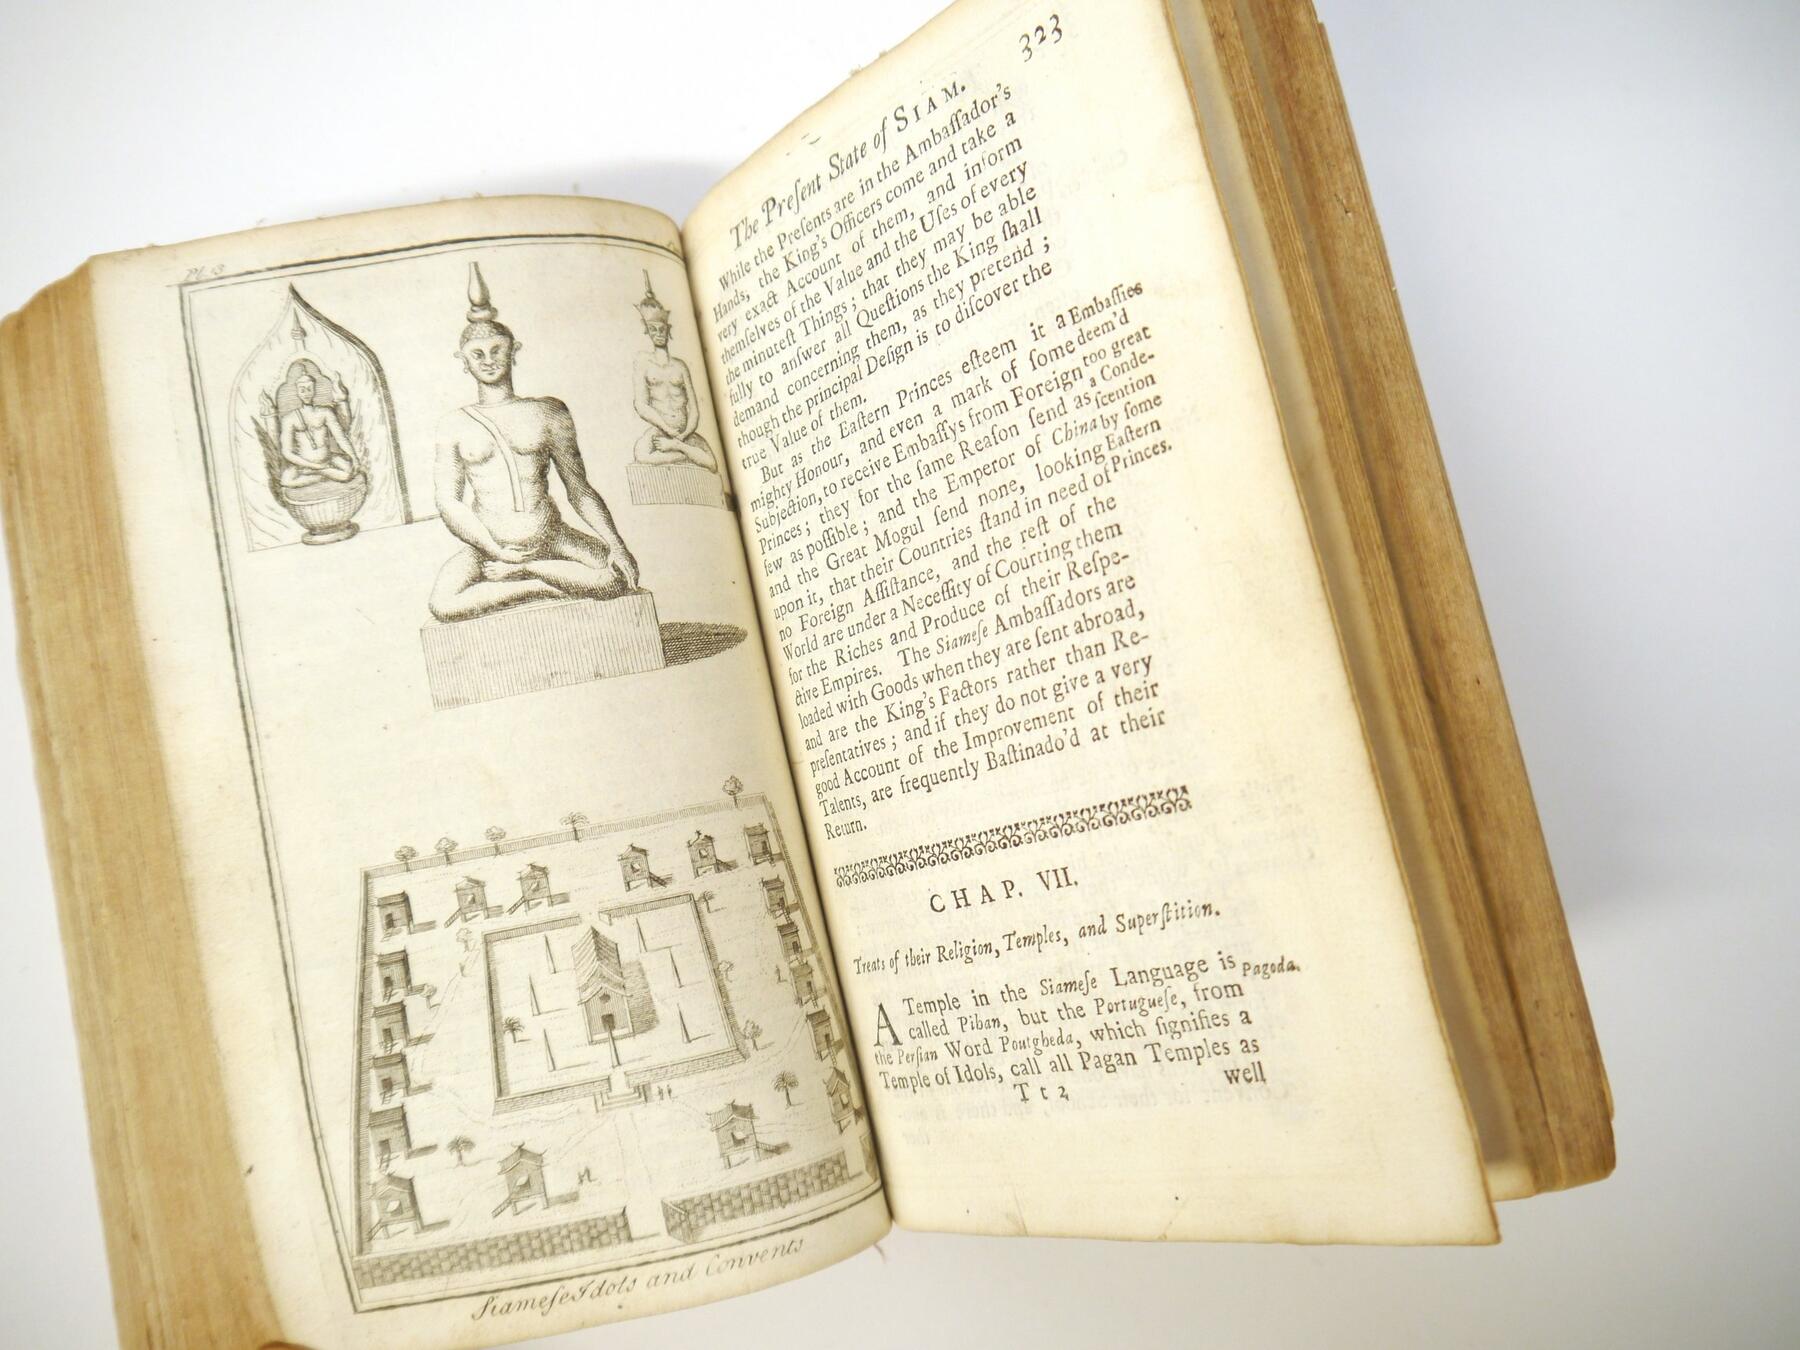 Pl. 13
Siameſe Idols and Convents
323
The Preſent State of SIAM.
While the Preſents are in the Ambaſſador's
Hands; the King's Officers come and take a
very exact Account of them, and inform
themſelves of the Value and the Uſes of every
the minuteſt Things; that they may be able
fully to anſwer all Queſtions the King ſhall
demand concerning them, as they pretend;
though the principal Deſign is to diſcover the
true Value of them.
But as the Eaſtern Princes eſteem it a
mighty Honour, and even a mark of ſome
Subjection, to receive Embaſſys from Foreign
Princes; they for the ſame Reaſon ſend as
few as poſſible; and the Emperor of China
and the Great Mogul ſend none, looking
upon it, that their Countries ſtand in need of
no Foreign Aſſiſtance, and the reſt of the
World are under a Neceſſity of Courting them
for the Riches and Produce of their Reſpe-
ctive Empires. The Siameſe Ambaſſadors are
loaded with Goods when they are ſent abroad,
and are the King's Factors rather than Re-
preſentatives; and if they do not give a very
good Account of the Improvement of their
Talents, are frequently Baſtinado'd at their
Return.
Embaſſies
deem'd
too great
a Conde-
ſcention
by ſome
Eaſtern
Princes.
CHAP. VII.
Treats of their Religion, Temples, and Superſtition.
A Temple in the Siameſe Language is
called Pihan, but the Portugueſe, from
the Perſian Word Poutgheda, which ſignifies a
Temple of Idols, call all Pagan Temples as
Pagoda.
T t 2
well